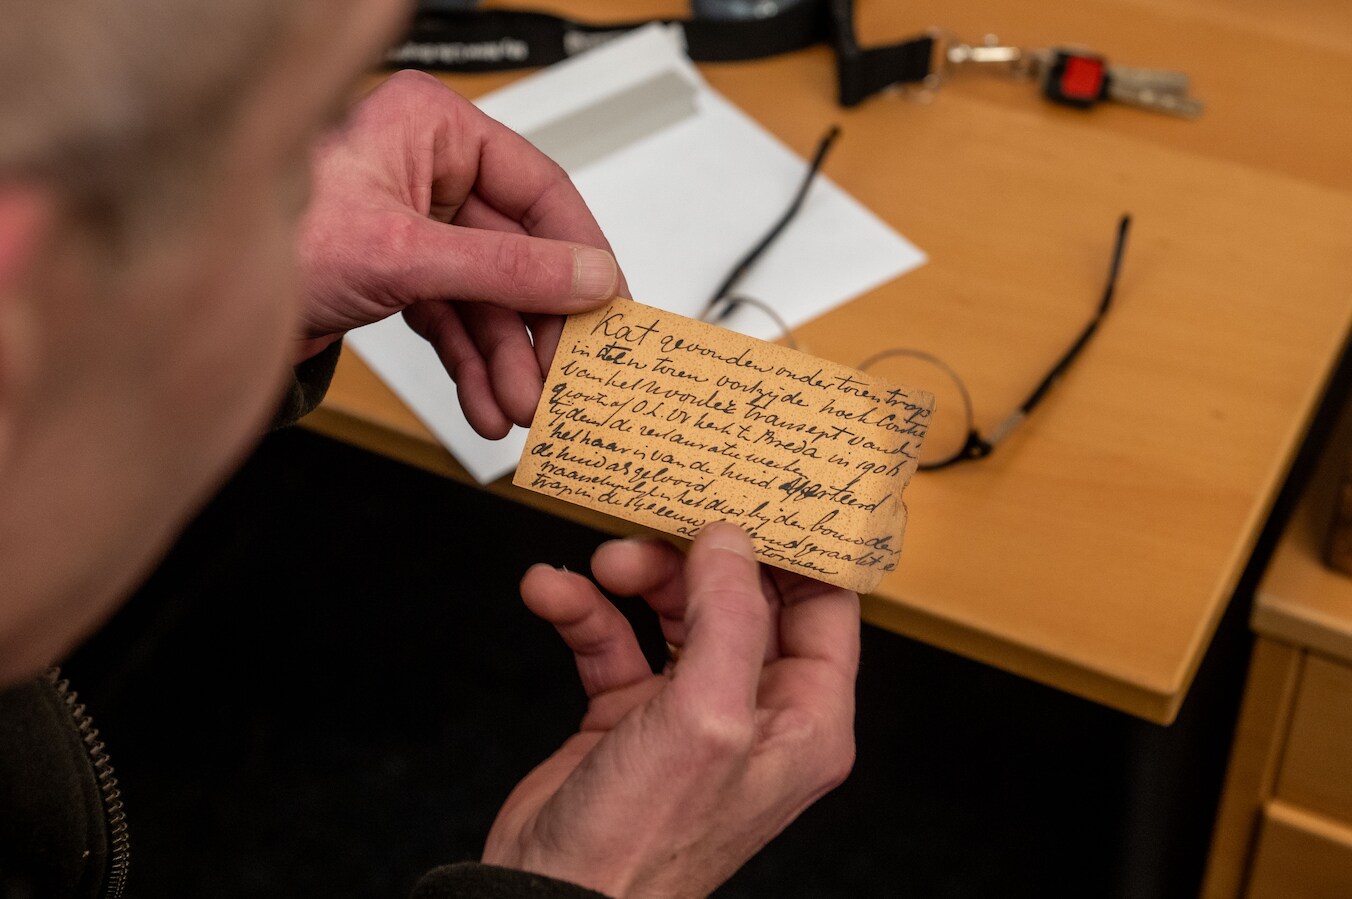 Kat gevonden onder toren trap
in den toren voorzijde hoek
van het Noorder transept van de
groote of O.L.Vr kerk te Breda in 1906
tijdens de restauratie werken
het haar is van de huid
de huid als gelooid
waarschijnlijk is het dier bij den bouw der
trap in de eeuw geraakt